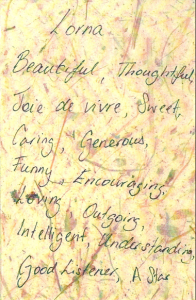 Lorna
Beautiful, Thoughtful,
Joie de vivre, Sweet,
Caring, Generous,
Funny, Encouraging,
Loving, Outgoing,
Intelligent, Understanding,
Good Listener, A Star